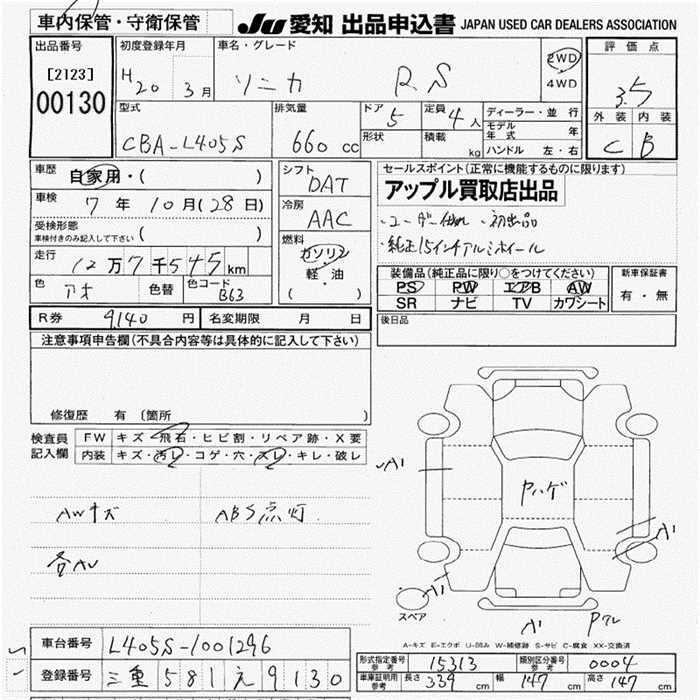 車内保管・守衛保管
JU 愛知 出品申込書 JAPAN USED CAR DEALERS ASSOCIATION
出品番号
[2123]
00130
初度登録年月
H20 3月
車名・グレード
ソニカ RS
2WD
4WD
評価点
3.5
外装 内装
C B
型式
CBA-L405S
排気量
660 cc
ドア 5
形状
定員 4人
積載 kg
ディーラー・並行
モデル年式 年
ハンドル 左・右
車歴 自家用・( )
車検 7年10月(28日)
受検形態
車検付きのみ記入して下さい ( )
走行 12万7千545km
色 アオ 色替 色コード B63
シフト DAT
冷房 AAC
燃料
ガソリン
軽・油
( )
セールスポイント(正常に機能するものに限ります)
アップル買取店出品
・ユーザー仕入れ ・初出品
・純正15インチアルミホイール
装備品(純正品に限り○をつけてください)
PS PW エアB AW
SR ナビ TV カワシート
新車保証書
有・無
R券 9,140円 名変期限 月 日
後日品
注意事項申告欄(不具合内容等は具体的に記入して下さい)
修復歴 有 〔箇所 〕
検査員記入欄
FW キズ・飛石・ヒビ割・リペア跡・X要
内装 キズ・汚レ・コゲ・穴・スレ・キレ・破レ
AWキズ ABS点灯
各AU
A1
ヤハゲ
A1
A1
スペア
A1
Pクレ
A-キズ E-エクボ U-凹み W-補修跡 S-サビ C-腐食 XX-交換済
車台番号 L405S-1001296
登録番号 三重 581 え 9130
形式指定番号 参考 15313 類別区分番号 参考 0004
車庫証明用 参考 長さ 339cm 幅 147cm 高さ 147cm